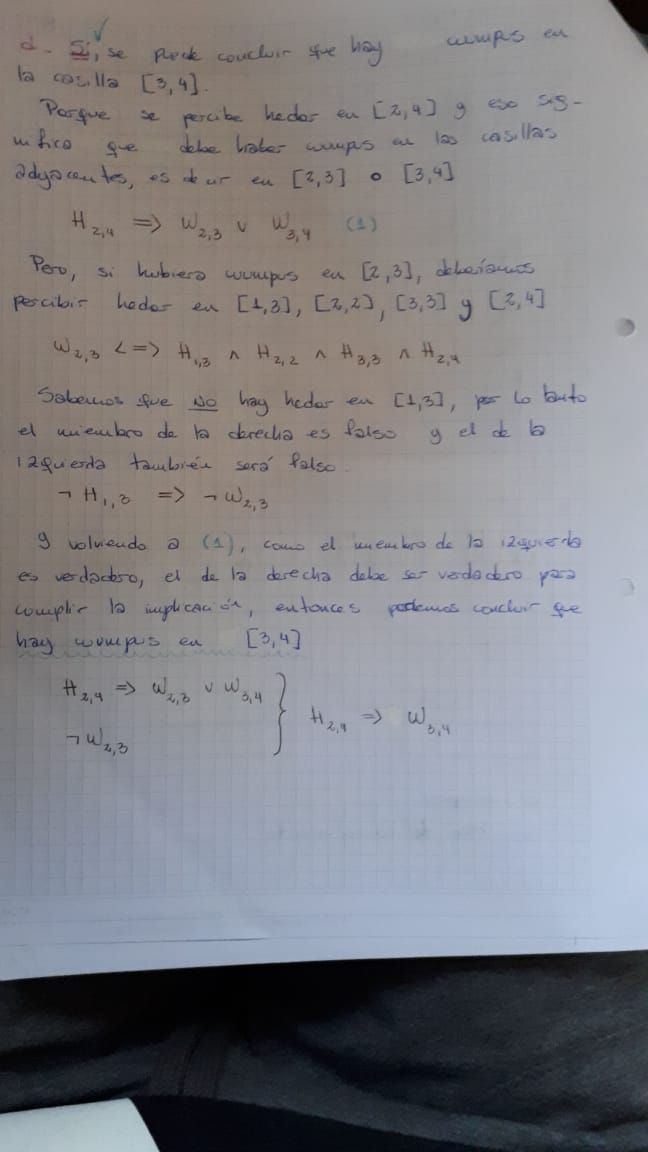 d. Sí, se puede concluir que hay wumpus en
la casilla [3,4].
Porque se percibe hedor en [2,4] y eso sig-
nifica que debe haber wumpus en las casillas
adyacentes, es decir en [2,3] o [3,4]
H2,4 => W2,3 ∨ W3,4 (1)
Pero, si hubiera wumpus en [2,3], deberíamos
percibir hedor en [1,3], [2,2], [3,3] y [2,4]
W2,3 <=> H1,3 ∧ H2,2 ∧ H3,3 ∧ H2,4
Sabemos que NO hay hedor en [1,3], por lo tanto
el miembro de la derecha es falso y el de la
izquierda también será falso.
¬ H1,3 => ¬ W2,3
y volviendo a (1), como el miembro de la izquierda
es verdadero, el de la derecha debe ser verdadero para
cumplir la implicación, entonces podemos concluir que
hay wumpus en [3,4]
H2,4 => W2,3 ∨ W3,4
¬ W2,3
} H2,4 => W3,4